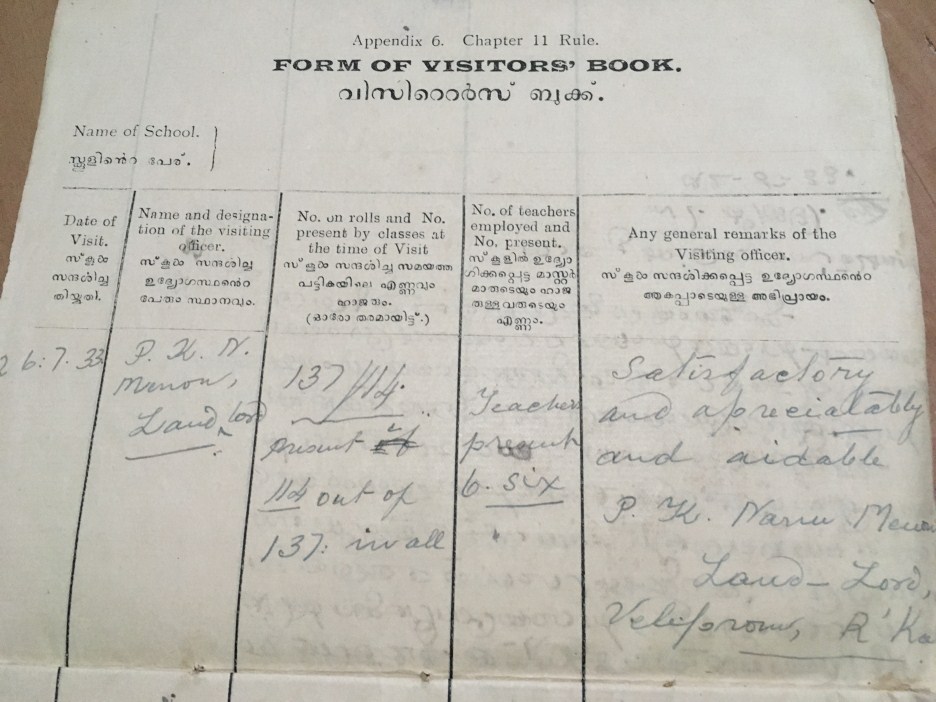 Appendix 6. Chapter 11 Rule.
FORM OF VISITORS' BOOK.
വിസിറെറർസ് ബുക്ക്.
Name of School.
സ്കൂളിൻെറ പേര്.
Date of
Visit.
സ്കൂൾ
സന്ദർശിച്ച
തിയ്യതി.
Name and designa-
tion of the visiting
officer.
സ്കൂൾ സന്ദർശിച്ച
ഉദ്യോഗസ്ഥൻെറ
പേരും സ്ഥാനവും.
No. on rolls and No.
present by classes at
the time of Visit
സ്കൂൾ സന്ദർശിച്ച സമയത്തു
പട്ടികയിലെ എണ്ണവും
ഹാജരും.
(ഓരോ തരമായിട്ട്.)
No. of teachers
employed and
No. present.
സ്കൂളിൽ ഉദ്യോ
ഗിക്കപ്പെട്ട മാസ്റ്റർ
മാരുടെയും ഹാജ
രുള്ളവരുടെയും
എണ്ണം.
Any general remarks of the
Visiting officer.
സ്കൂൾ സന്ദർശിക്കപ്പെട്ട ഉദ്യോഗസ്ഥൻെറ
ആകപ്പാടെയുള്ള അഭിപ്രായം.
26:7.33
P. K. N.
Menon,
Land lord
137/114.
present
114 out of
137: in all
Teachers
present
6. six
Satisfactory
and apreciatably
and aidable
P. K. Nanu Menon
Land-Lord,
R' Ka